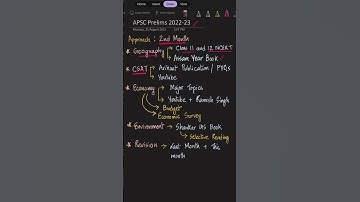 APSC Prelims 2022-23
Approach : 2nd Month
* Geography → Class 11 and 12 NCERT
→ Assam Year Book
* CSAT → Arihant Publication / PYQs
→ Youtube
* Economy → Major Topics
→ Youtube + Ramesh Singh
→ Budget
Economic Survey
* Environment → Shankar IAS Book
↳ Selective Reading
* Revision → Last Month + this
month